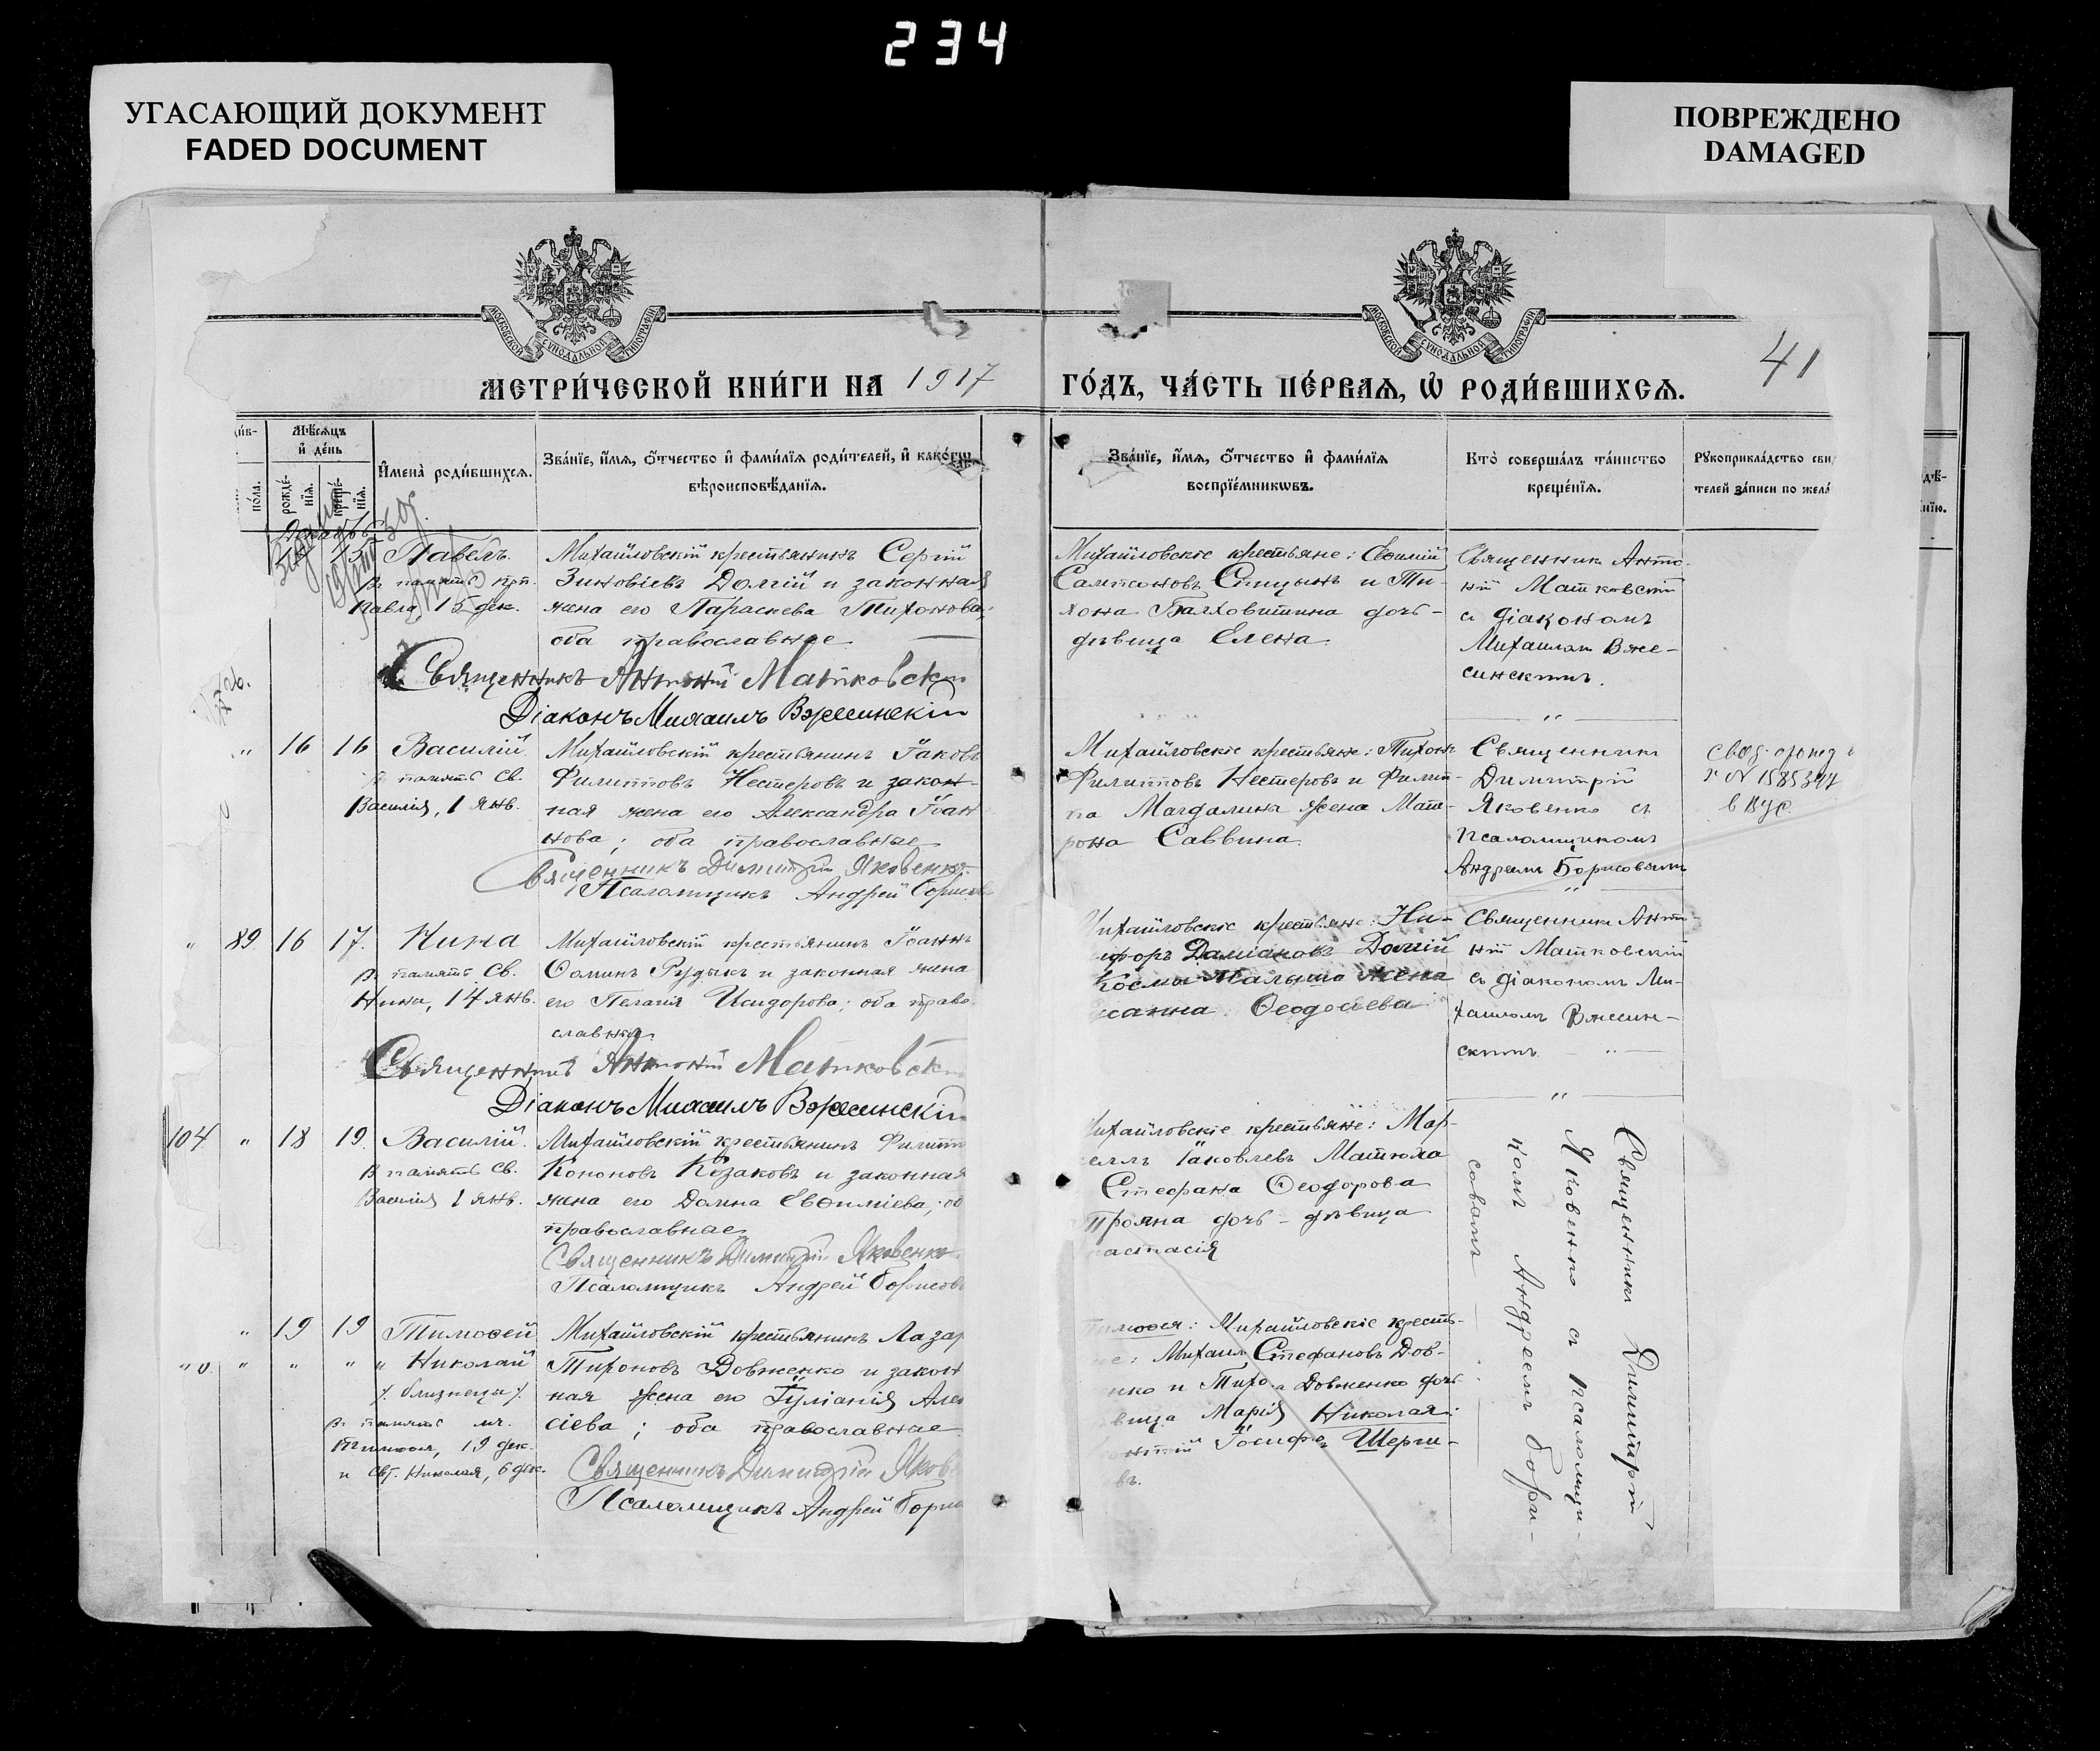 234
УГАСАЮЩИЙ ДОКУМЕНТ
FADED DOCUMENT
ПОВРЕЖДЕНО
DAMAGED
МОСКОВСКОЙ СУНОДАЛЬНОЙ ТИПОГРАФІИ
МОСКОВСКОЙ СУНОДАЛЬНОЙ ТИПОГРАФІИ
41
МЕТРИ́ЧЕСКОЙ КНИ́ГИ НА 1917
ГО́ДЪ, ЧА́СТЬ ПЕ́РВАѦ, Ѡ҆ РОДИ́ВШИХСѦ.
Мѣ́сѧцъ
и҆ де́нь
по́ла.
рожде́-
нїѧ.
креще́-
нїѧ.
И҆мена̀ роди́вшихсѧ.
Зва́нїе, и҆́мѧ, ѻ҆́тчество и҆ фами́лїѧ роди́телей, и҆ како́гѡ
вѣроисповѣ́данїѧ.
Зва́нїе, и҆́мѧ, ѻ҆́тчество и҆ фами́лїѧ
воспрїе́мникѡвъ.
Кто̀ соверша́лъ та́инство
креще́нїѧ.
Рꙋкоприкла́дство сви
телей за́писи по жела́
Декабь
15 Павелъ
въ память прп.
Павла, 15 дек.
Михайловскій крестьянинъ Сергій
Зиновіевъ Долгій и законная
жена его Параскева Тихонова;
оба православные
Священникъ Антоній Матковскій
Діаконъ Михаилъ Вржесинскій
Михайловскіе крестьяне: Евѳимій
Сампсоновъ Спицынъ и Ти-
хона Балховитина дочь-
дѣвица Елена.
Священникъ Анто-
ній Матковскій
съ діакономъ
Михаиломъ Врже-
синскимъ.
„ 16 16 Василій
въ память св.
Василія, 1 янв.
Михайловскій крестьянинъ Іаковъ
Филипповъ Нестеровъ и закон-
ная жена его Александра Іоан
нова; оба православные
Священникъ Димитрій Яковенко
Псаломщикъ Андрей Борисов
Михайловскіе крестьяне: Тихонъ
Филипповъ Нестеровъ и Филип-
па Магдалина жена Мат-
рона Саввина.
Священникъ
Димитрій
Яковенко съ
псаломщикомъ
Андреемъ Борисовымъ
„
„ 89 16 17. Нина
въ память св.
Нины, 14 янв.
Михайловскій крестьянинъ Іоаннъ
Ѳоминъ Рудыкъ и законная жена
его Пелагія Исидорова; оба право
славные
Священникъ Антоній Матковскій
Діаконъ Михаилъ Вржесинскій
ихайловскіе крестьяне: Ни-
ифоръ Даміановъ Долгій
Космы Малыша жена
санна Ѳеодосіева
Священникъ Анто-
ній Матковскій
съ діакономъ Ми-
хаиломъ Вржесин-
скимъ
„
104 „ 18 19 Василій.
въ память св.
Василія 1 янв.
Михайловскій крестьянинъ Филипп
Кононовъ Козаковъ и законная
жена его Домна Евѳиміева; об
православные
Священникъ Димитрій Яковенко
Псаломщикъ Андрей Борисовъ
ихайловскіе крестьяне: Мар-
еллъ Іаковлевъ Матюха
Стефана Ѳеодорова
Трояна дочь - дѣвица
настасія
Священникъ Димитрій
Яковенко съ псаломщи-
комъ Андреемъ Бори-
совымъ
„ 19 19 Тимоѳей
„ „ „ „ Николай
/. близнецы /.
въ память мч.
Тимоѳея, 19 дек.
и свт. Николая, 6 дек.
Михайловскій крестьянинъ Лазар
Тихоновъ Довженко и закон
ная жена его Іуліанія Алек
сіева; оба православные
Священникъ Димитрій Яков
Псаломщикъ Андрей Борис
имоѳея: Михайловскіе кресть-
не: Михаилъ Стефановъ Дов-
нко и Тихона Довженко дочь
вица Марія Николая:
Іосифъ Шерги-
въ.